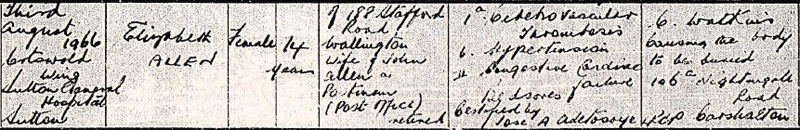 Third
August
1966
Cotswold
Wing
Sutton General
Hospital
Sutton
Elizabeth
ALLEN
Female
74
years
of 188 Stafford
Road
Wallington
Wife of John
Allen a
Postman
(Post Office)
retired
1a Cerebrovascular
Thrombosis
b. Hypertension
II Congestive Cardiac
failure
Bedsores
Certified by
Jose A
C. Watkins
Causing the body
to be buried
106a Nightingale
Road
Carshalton